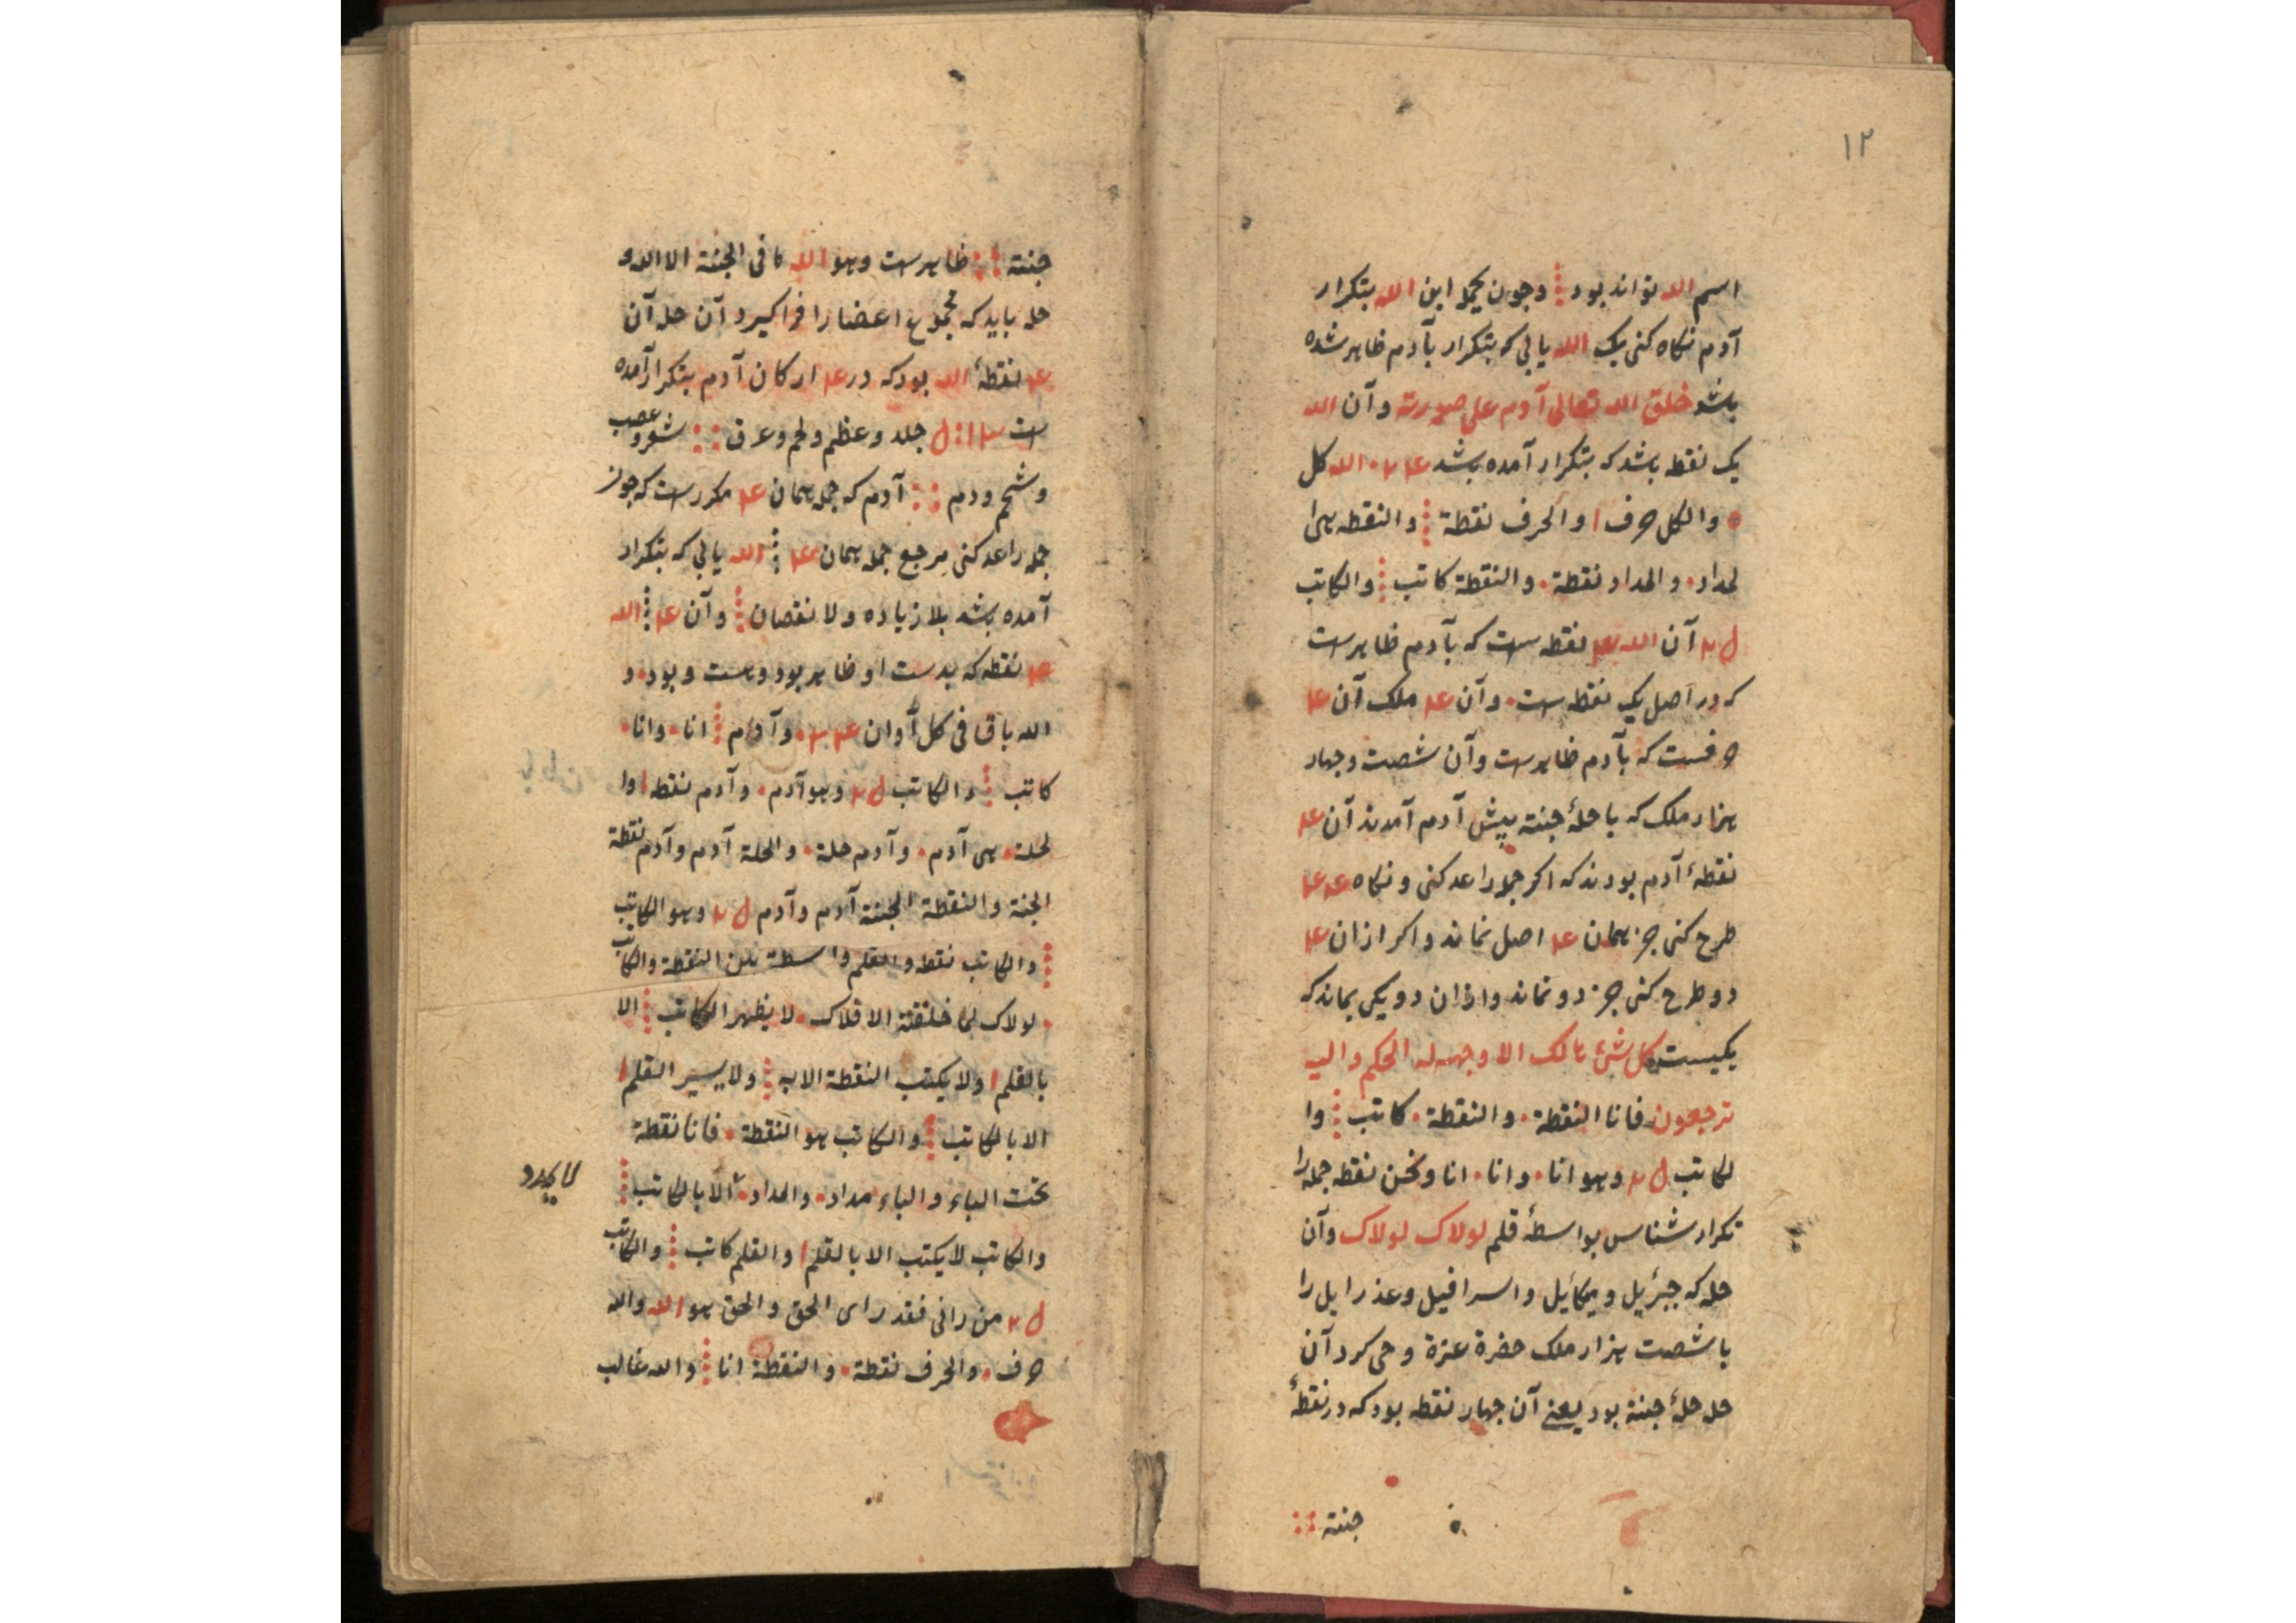 ١٢
اسم الله تواند بود وچون بجمله این الله بتکرار
آدم نکاه کنی یک الله یابی که بتکرار بآدم ظاهر شده
باشد خلق الله تعالی آدم علی صورته وآن الله
یک نقطه باشد که بتکرار آمده باشد الله کل
والکل حرف ا والحرف نقطة والنقطه هی ا
لمداد والمداد نقطة والنقطة کاتب والکاتب
آن الله نقطه است که بآدم ظاهرست
که در اصل یک نقطه است وآن ملک آن
حرفست که بآدم ظاهرست وآن شصت وچهار
هزار ملک که با حلهٔ جنته پیش آدم آمدند آن
نقطهٔ آدم بودند که اکر جمله را عد کنی ونکاه
طرح کنی جز همان اصل نماند واکر ازان
دو طرح کنی جز دو نماند وازان دو یکی بماند که
یکیست کل شئ هالک الا وجهه له الحکم والیه
ترجعون فانا النقطة والنقطة کاتب وا
لکاتب وهو انا وانا انا ونحن نقطه جمله را
تکرار شناس بواسطهٔ قلم لولاک لولاک وآن
حله که جبرئیل ومیکائیل واسرافیل وعذرایل را
با شصت هزار ملک حضرة عزة وحی کرد آن
حله حلهٔ جنته بود یعنی آن چهار نقطه بود که در نقطهٔ
جنته
جنته ظاهرست وهو الله ما فی الجنة الا الله و
حله باید که مجموع اعضا را فراکیرد آن حله آن
نقطهٔ الله بود که در ارکان آدم بتکرار آمده
است جلد وعظم ولحم وعرق شعر وعصب
وشحم ودم آدم که جمله همان مکررست که چون
جمله را عد کنی مرجع جمله همان الله یابی که بتکرار
آمده باشد بلا زیاده ولا نقصان وآن الله
نقطه که بدست او ظاهر بود وهست وبود و
الله باق فی کل آوان وآدم انا وانا
کاتب والکاتب وهو آدم وآدم نقطه وا
لحلة هی آدم وآدم حلة والحلة آدم وآدم نقطة
الجنة والنقطة الجنة آدم وآدم وهو الکاتب
والکاتب نقطه والقلم واسطة بین النقطة والکاتب
لولاک لما خلقتة الافلاک لا یظهر الکاتب الا
بالقلم ولا یکتب النقطة الا به ولا یسیر القلم
الا بالکاتب والکاتب هو النقطة فانا نقطة
تحت الباء والباء مداد والمداد الا بالکاتب
والکاتب لا یکتب الا بالقلم والقلم کاتب والکاتب
من رانی فقد رای الحق والحق هو الله والله
حرف والحرف نقطة والنقطة انا والله غالب